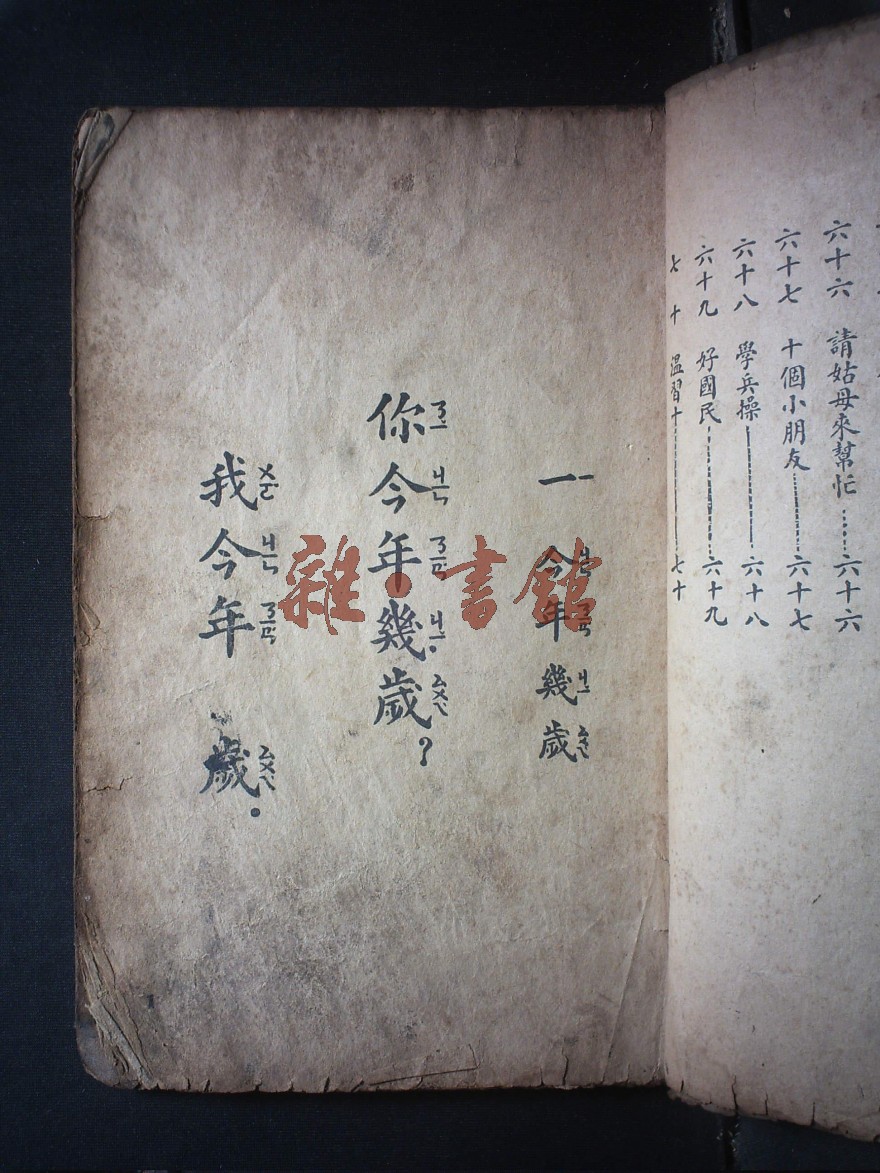 六十六 請姑母來幫忙……六十六
六十七 十個小朋友……六十七
六十八 學兵操……六十八
六十九 好國民……六十九
七十 溫習十……七十
一 今年幾歲
你今年幾歲?
我今年 歲.
雜·書館